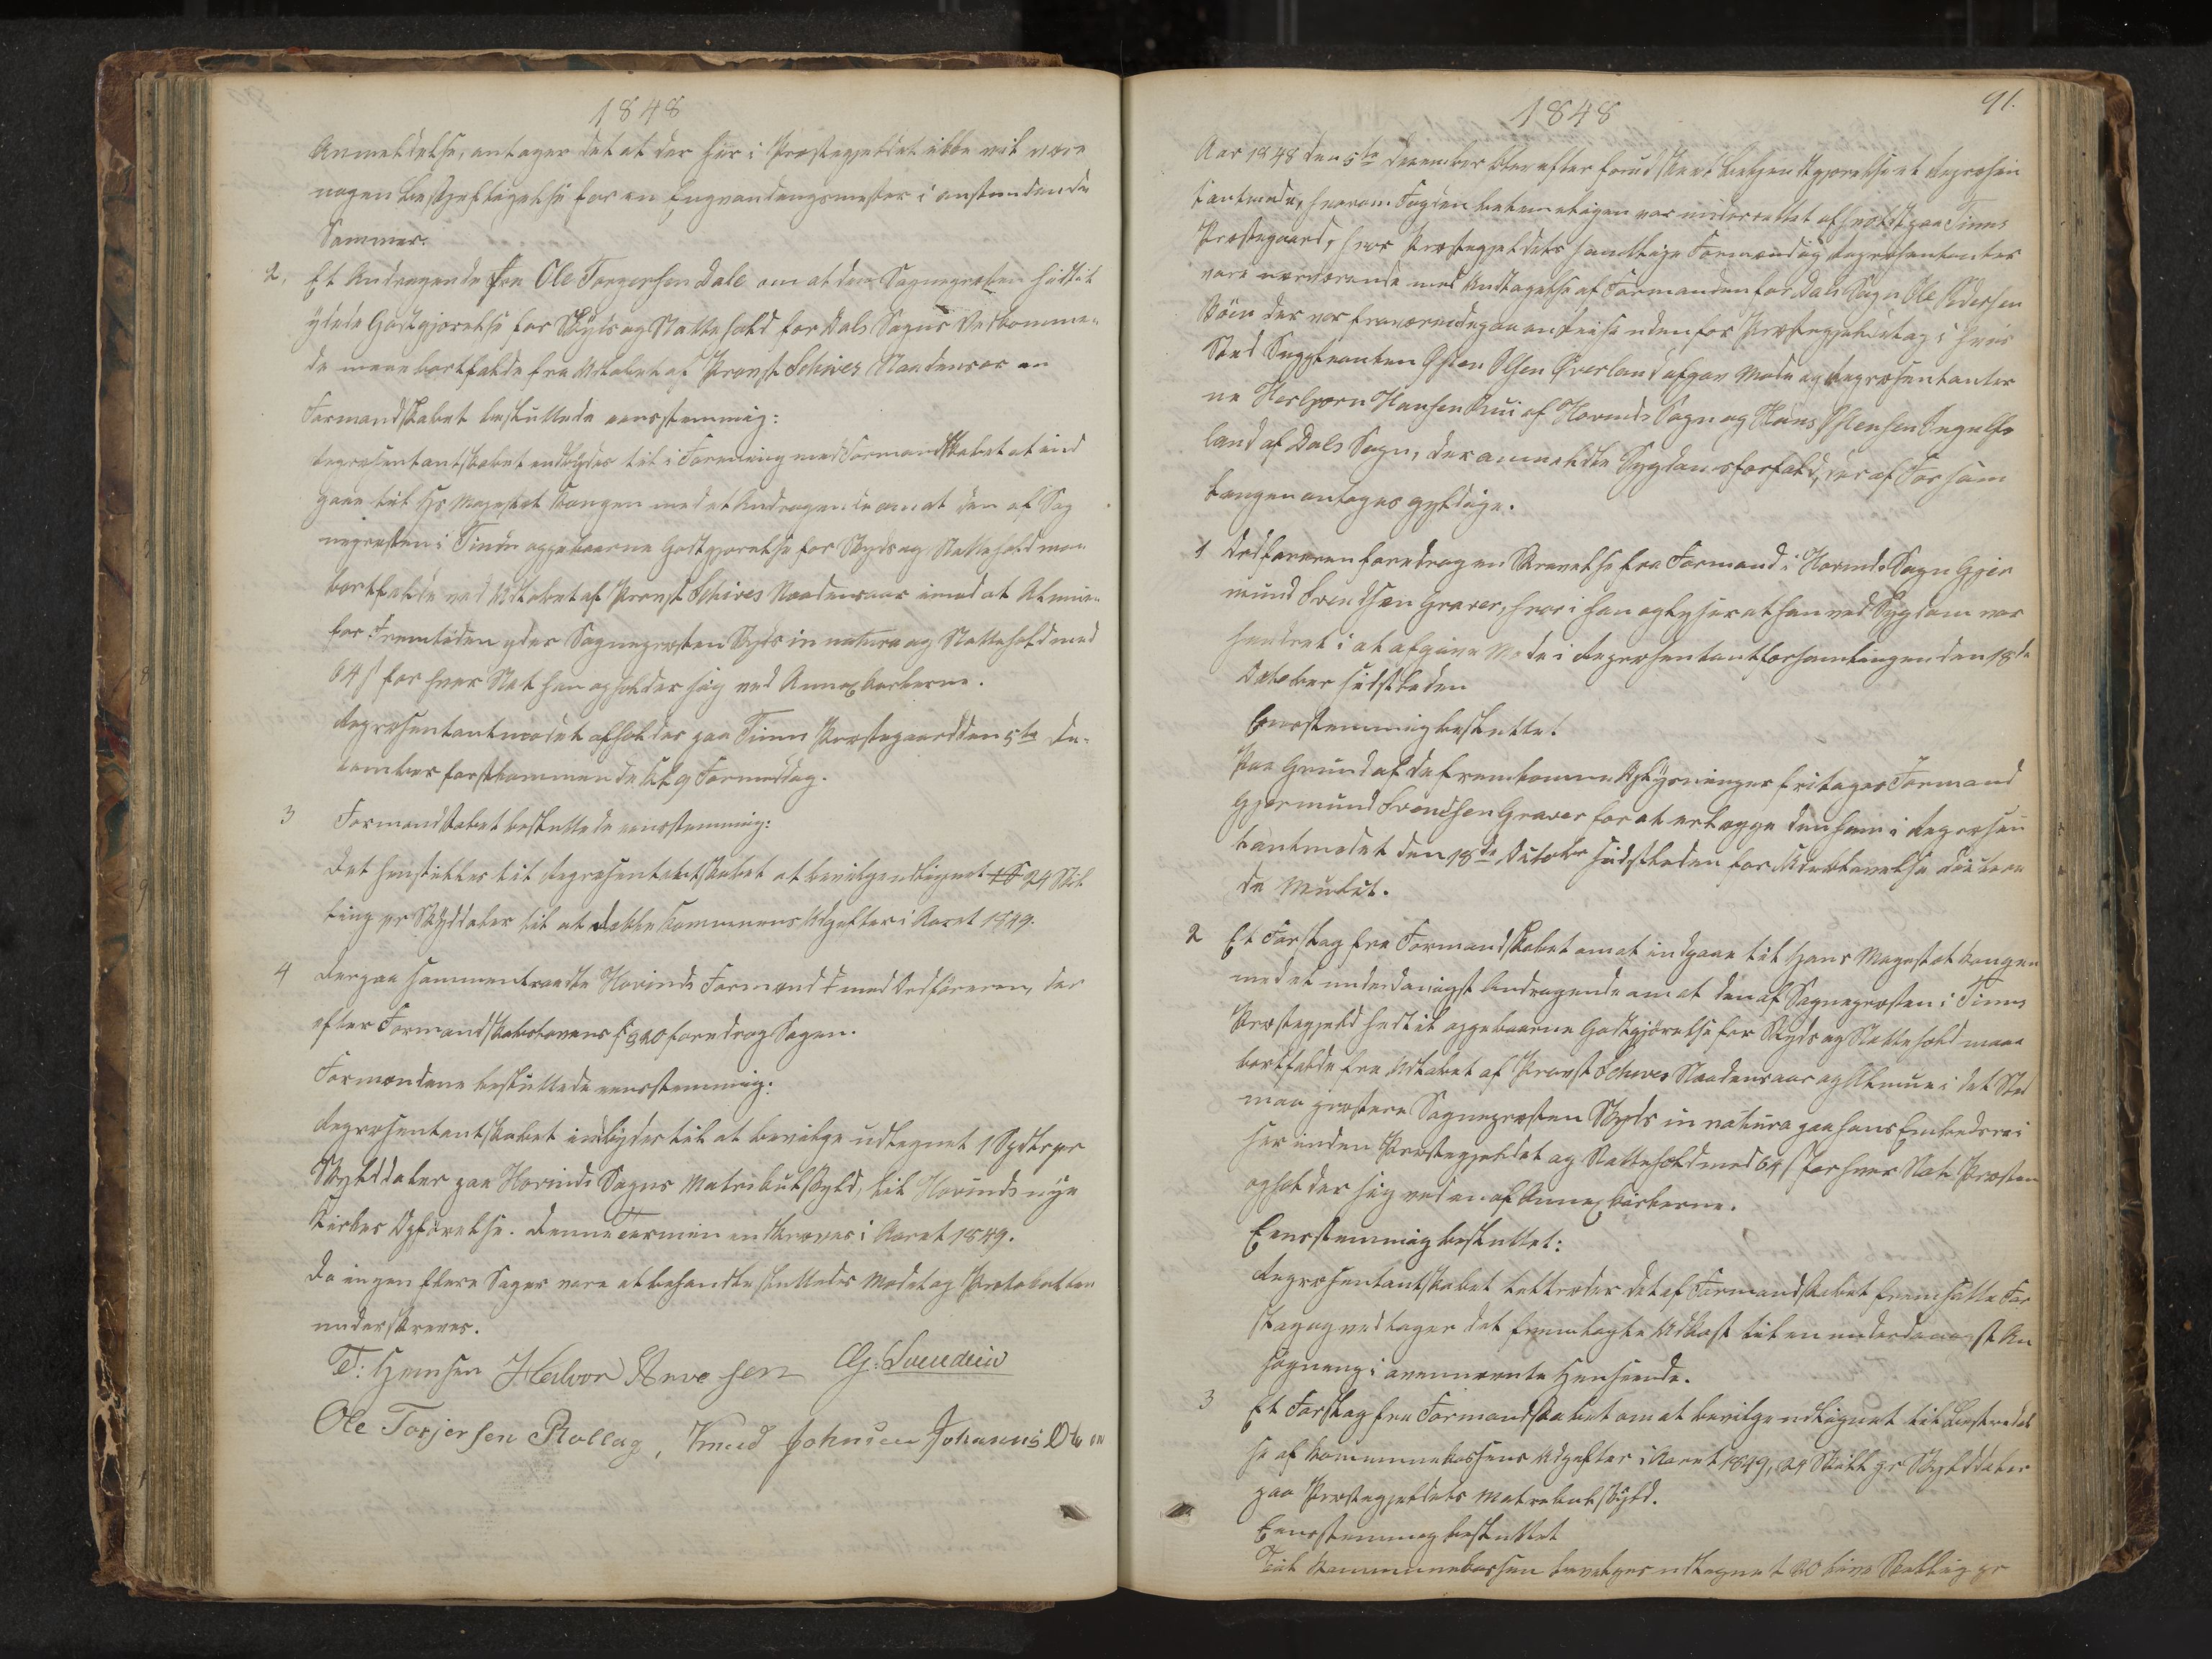 1848
Anmeldelse, antager det at der her i Præstegjeldet ikke vil være
nogen Beskjeftigelse for en Engvandingsmester i anstundende
Sommer.
2, Et Andragende fra Ole Torgersen Dale om at den Sognepræsten hidtil
ydede Godtgjørelse for Skyds og Nattehold for Dals Sogns Vedkomme-
de maae bortfalde fra Udløbet af Provst Schives Naadensaar
Formandskabet besluttede eensstemmig:
Repræsentantskabet indbydes til i Forening med Formandskabet at ind
gaae til Hs Majestæt Kongen med et Andragende om at den af Sog
nepræsten i Tinn oppebaarne Godtgjørelse for Skyds og Nattehold maa
bortfalde ved Udløbet af Provst Schives Naadensaar imod at Almuen
for Fremtiden yder Sognepræsten Skyds in natura og Nattehold med
64 s for hver Nat han opholder sig ved Annexkirkerne.
Repræsentantmødet afholdes paa Tinn Præstegaard den 5te De-
cember førstkommende Kl 9 Formiddag.
3 Formandskabet besluttede eensstemmig:
Det henstilles til Repræsentantskabet at bevilge udlignet 24 Skil
ling pr Skylddaler til at dække Kommunens Udgifter i Aaret 1849.
4 Derpaa sammentraadte Hovinds Formænd med Ordføreren, der
efter Formandskabslovens § 20 foredrog Sagen.
Formændene besluttede eensstemmig:
Repræsentantskabet indbydes til at bevilge udlignet 1 Spdlr pr
Skylddaler paa Hovinds Sogns Matrikulskyld, til Hovinds nye
Kirkes Opførelse. Denne Termin indkræves i Aaret 1849.
Da ingen flere Sager vare at behandle sluttedes Mødet og Protokollen
underskreves.
T: Hansen Halvor Arve sen G: Svendsen
Ole Torjersen Rollag, Knud Johnsen Johannis Olsen
1848
91.
Aar 1848 den 5te December blev efter forud skeet Bekjendtgjørelse et Repræsen
tantmøde, hvorom Fogden betimeligen var underrettet afholdt paa Tinns
Præstegaard, hvor Præstegjeldets samtlige Formænd og Repræsentanter
vare nærværende med Undtagelse af Formanden for Dals Sogn Ole Pedersen
Bøen der var fraværende paa en Reise udenfor Præstegjeldet og i hvis
Sted Suppleanten Østen Olsen Øverland afgav Møde og Repræsentanter
ne Herbjørn Hansen Rui af Hovinds Sogn og Hans Østensen Ingulfs
land af Dals Sogn, der anmeldte Sygdomsforfald, der af Forsam
lingen antages gyldige.
1 Ordføreren foredrog en Skrivelse fra Formand i Hovinds Sogn Gjer
mund Svendsen Graver, hvori han oplyser at han ved Sygdom var
hindret i at afgive Møde i Repræsentantforsamlingen den 18de
October sidstleden
Eensstemmig besluttet
Paa Grund af de fremkomne Oplysninger fritages Formand
Gjermund Svendsen Graver for at erlægge den ham i Repræsen
tantmødet den 18de October sidstleden for Udeblivelse dicteere
de Mulct.
2 Et Forslag fra Formandskabet om at indgaae til Hans Majestæt Kongen
med et underdanigst Andragende om at den af Sognepræsten i Tinns
Præstegjeld hidtil oppebaarne Godtgjørelse for Skyds og Nattehold maae
bortfalde fra Udløbet af Provst Schives Naadensaar og Almuen i det Sted
maa præstere Sognepræsten Skyds in natura paa hans Embedsreise
her inden Præstegjeldet og Nattehold med 64 s for hver Nat Præsten
opholder sig ved en af Annexkirkerne.
Eensstemmig besluttet:
Repræsentantskabet tiltræder det af Formandskabet fremsatte For
slag og vedtager det fremlagte Udkast til en underdanigst An
søgning i ovennævnte Henseende.
3 Et Forslag fra Formandskabet om at bevilge udlignet til Bestridel
se af Kommunekassens Udgifter i Aaret 1849, 24 Skill pr Skylddaler
paa Præstegjeldets Matrikulskyld.
Eensstemmig besluttet
Til Kommunekassen bevilges udlignet 20 tive Skilling pr